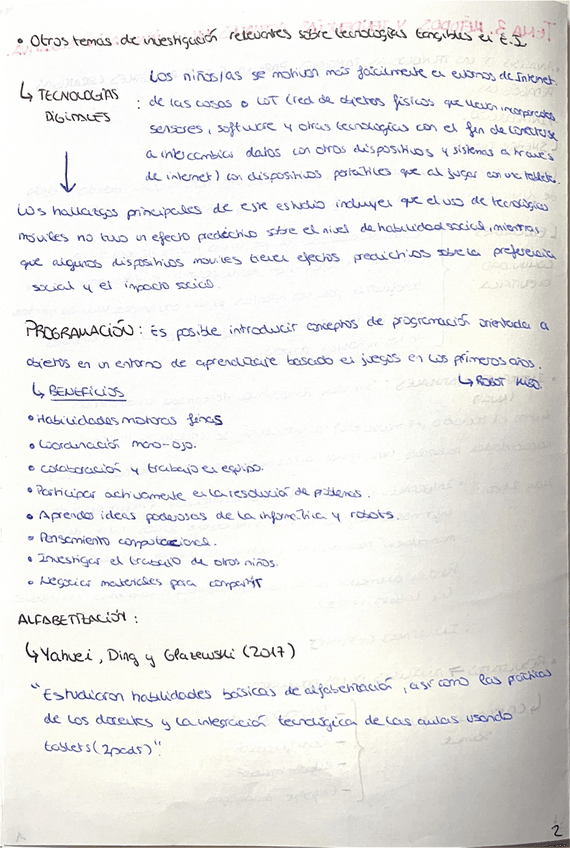 • Otros temas de investigación relevantes sobre tecnologías tangibles en E.I
↳ TECNOLOGÍAS DIGITALES : Los niños/as se motivan más fácilmente en entornos de Internet
de las cosas o IoT (red de objetos físicos que llevan incorporados
sensores, software y otras tecnologías con el fin de conectarse
a intercambiar datos con otros dispositivos y sistemas a través
de internet) con dispositivos portátiles que al jugar con una tablet.
Los hallazgos principales de este estudio incluyen que el uso de tecnologías
móviles no tuvo un efecto predictivo sobre el nivel de habilidad social, mientras
que algunos dispositivos moviles tienen efectos predictivos sobre la preferencia
social y el impacto social.
PROGRAMACIÓN: Es posible introducir conceptos de programación orientada a
objetos en un entorno de aprendizaje basado en juegos en los primeros años.
↳ BENEFICIOS
↳ ROBOT
• Habilidades motoras finas
• Coordinación mano-ojo.
• Colaboración y trabajo en equipo.
• Participar activamente en la resolución de problemas.
• Aprender ideas poderosas de la informática y robots.
• Pensamiento computacional.
• Investigar el trabajo de otros niños.
• Negociar materiales para compartir
ALFABETIZACIÓN :
↳ Yahuei, Ding y Glazewski (2017)
"Estudiaron habilidades básicas de alfabetización, así como las prácticas
de los docentes y la integración tecnológica de las aulas usando
tablets (ipads)".
2